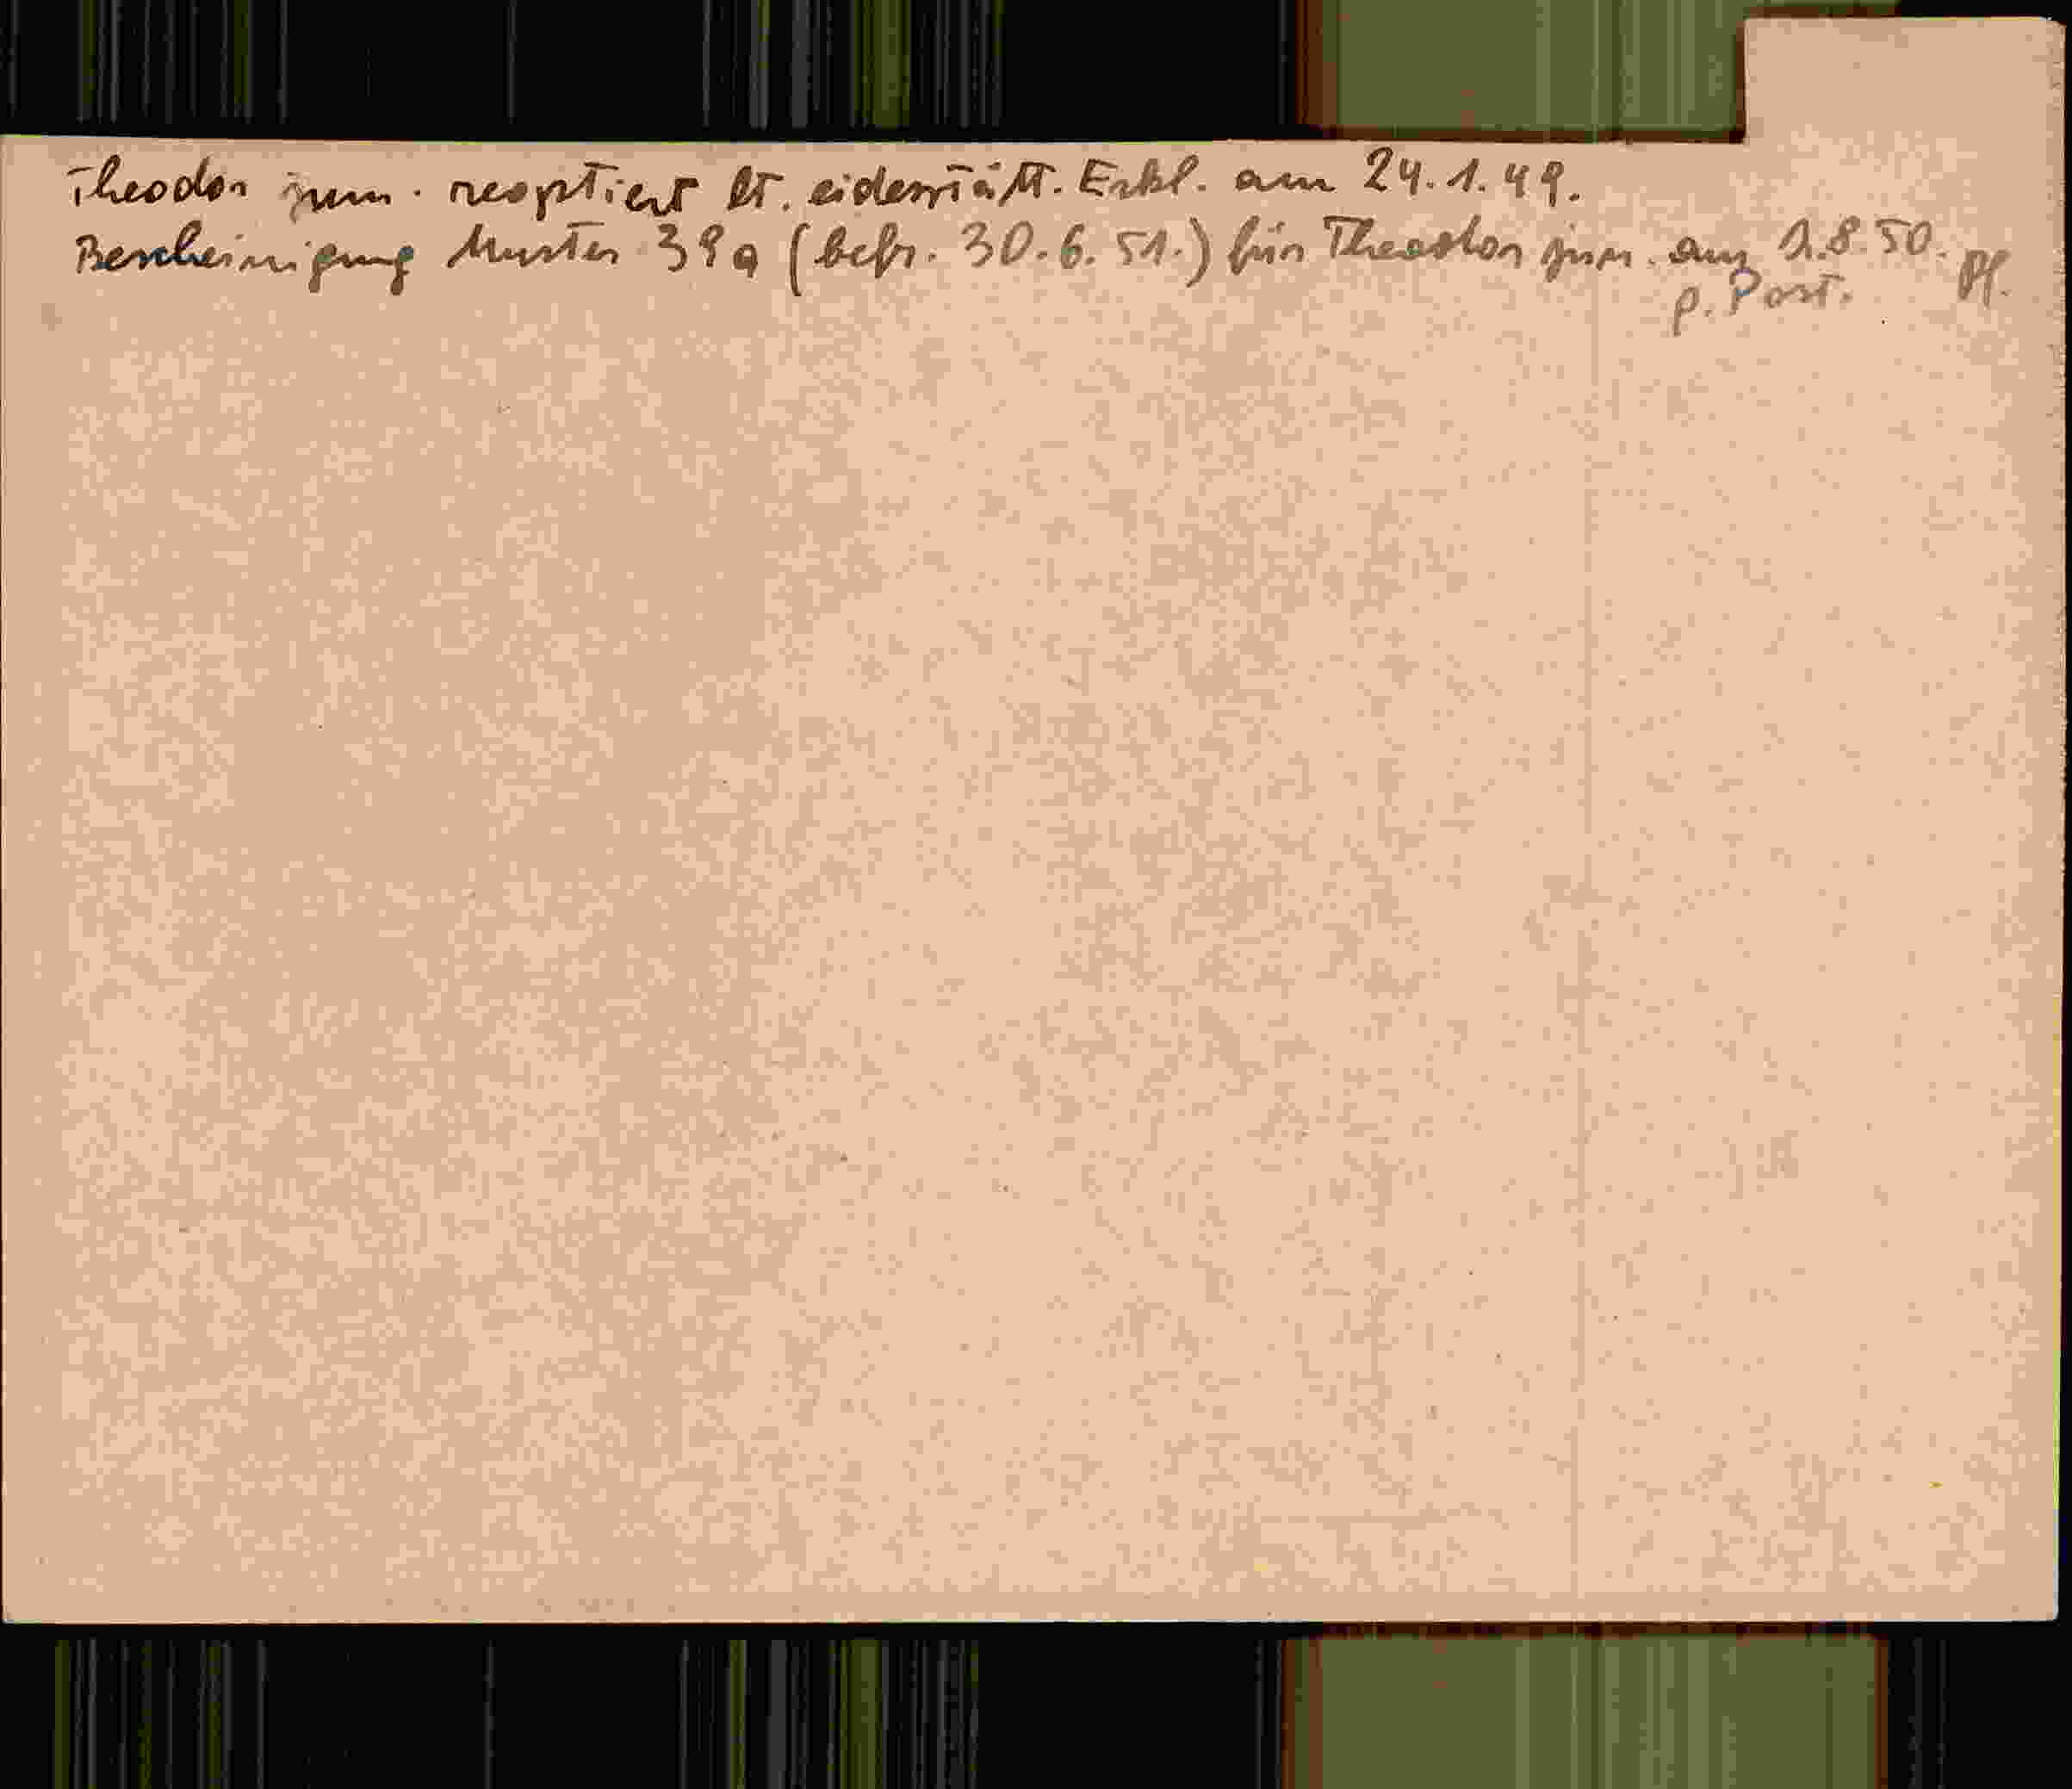 Theodor jun. reoptiert lt. eidesstatt. Erkl. am 24.1.49.
Bescheinigung Muster 39a (befr. 30.6.51.) für Theodor jun. am 1.8.50.
p. Post. Pf.